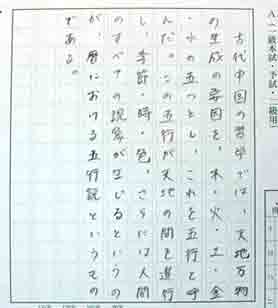 古代中国の哲学では、天地万物
の生成の要因を、木・火・土・金
・水の五つとし、これを五行と呼
んだ。この五行が天地の間を運行
し、季節・時・色、さらには人間
のすべての現象が生じるというの
が、暦における五行説というもの
である。